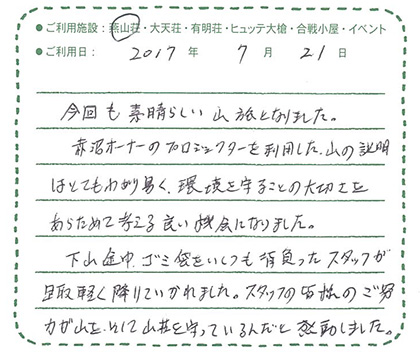 ●ご利用施設：燕山荘・大天荘・有明荘・ヒュッテ大槍・合戦小屋・イベント
●ご利用日： 2017 年 7 月 21 日
今回も素晴らしい山旅となりました。
赤沼オーナーのプロジェクターを利用した、山の説明
はとてもわかり易く、環境を守ることの大切さを
あらためて考える良い機会になりました。
下山途中、ゴミ袋をいくつも背負ったスタッフが
足取軽く降りていかれました。スタッフの皆様のご努
力が山を、そして山荘を守っているんだと感動しました。